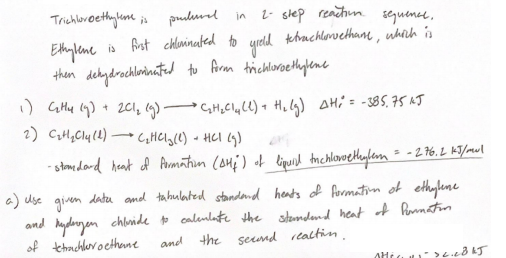 Trichloroethylene is produced in 2-step reaction sequence.
Ethylene is first chlorinated to yield tetrachloroethane, which is
then dehydrochlorinated to form trichloroethylene
1) C₂H₄ (g) + 2Cl₂ (g) → C₂H₂Cl₄ (l) + H₂ (g) ΔHᵣ° = -385.75 kJ
2) C₂H₂Cl₄ (l) → C₂HCl₃ (l) + HCl (g)
- standard heat of formation (ΔHf°) of liquid trichloroethylene = -276.2 kJ/mol
a) Use given data and tabulated standard heats of formation of ethylene
and hydrogen chloride to calculate the standard heat of formation
of tetrachloroethane and the second reaction.